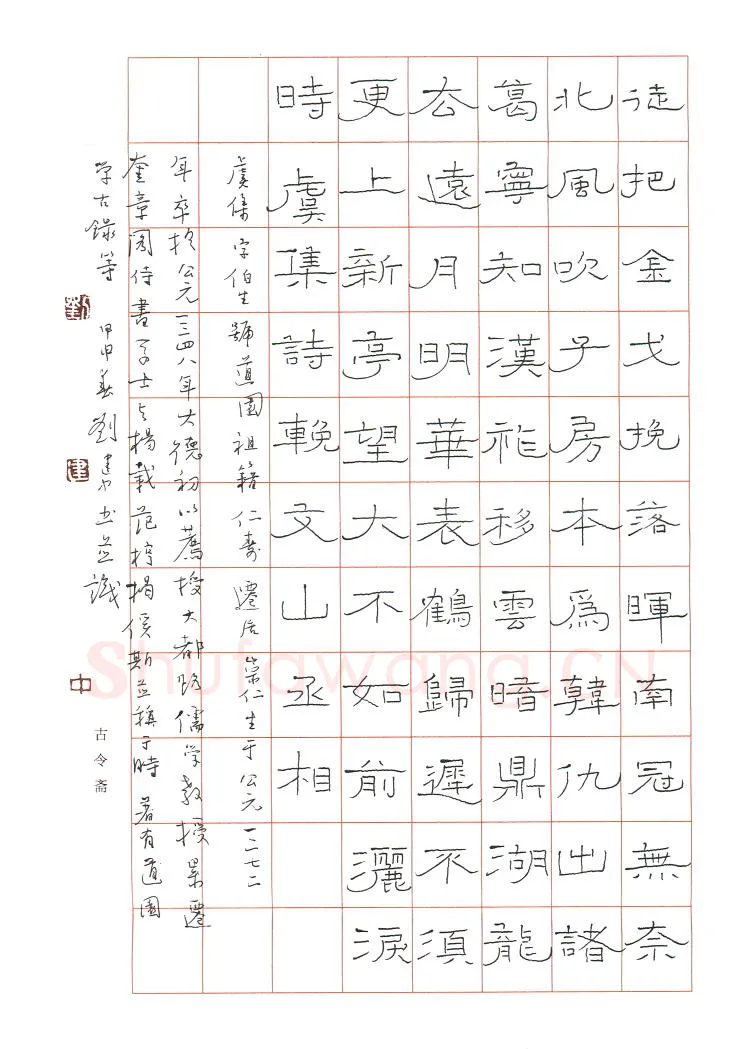 徒把金戈挽落暉南冠無奈
北風吹子房本爲韓仇出諸
葛寧知漢祚移雲暗鼎湖龍
去遠月明華表鶴歸遲不須
更上新亭望大不如前灑淚
時虞集詩輓文山丞相
虞集字伯生號道園祖籍仁壽遷居崇仁生于公元一二七二
年卒於公元一三四八年大德初以薦授大都路儒学教授累遷
奎章阁侍書学士与揚載范梈揭傒斯並稱于時著有道園
学古錄等 甲申春劉建书並識
劉
建
中
古令斋
Shufawang.CN